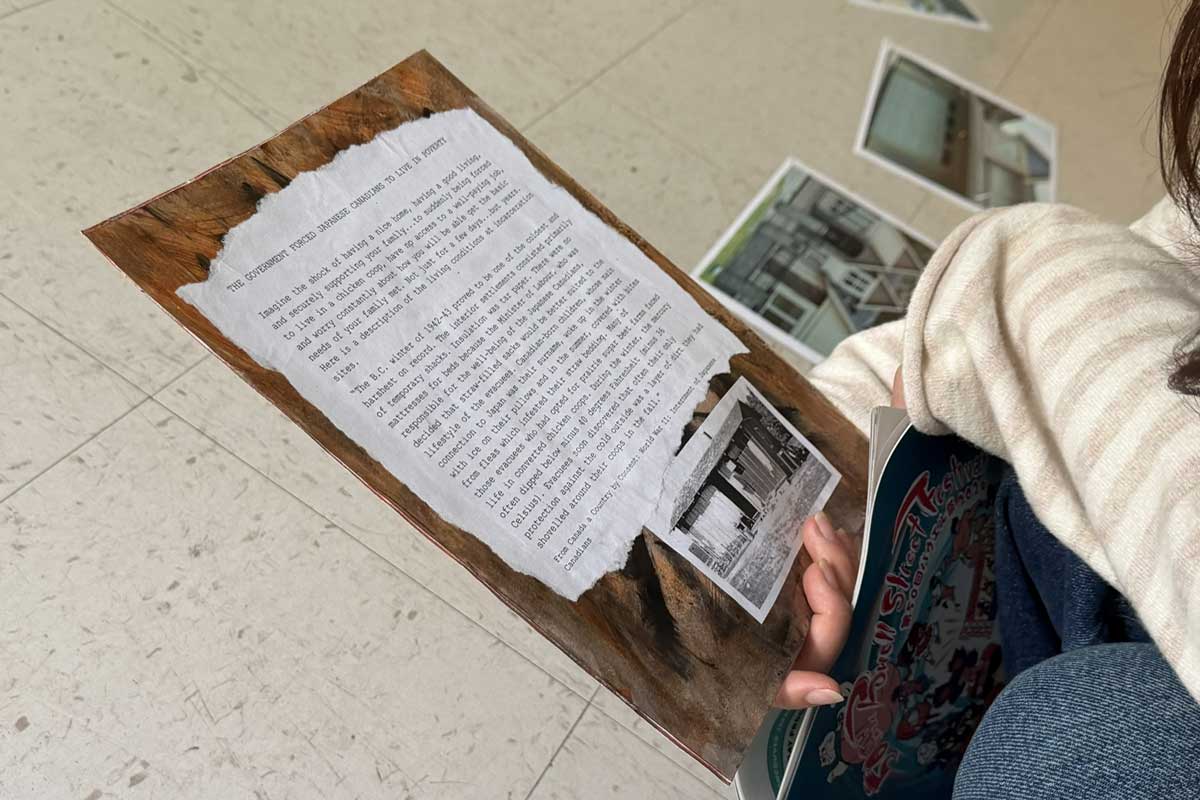 THE GOVERNMENT FORCED JAPANESE CANADIANS TO LIVE IN POVERTY
Imagine the shock of having a nice home, having a good living,
and securely supporting your family...to suddenly being forced
to live in a chicken coop, have no access to a well-paying job,
and worry constantly about how you will be able get the basic
needs of your family met. Not just for a few days...but years.
Here is a description of the living conditions at incarceration
sites.
"The B.C. winter of 1942-43 proved to be one of the coldest and
harshest on record. The interior settlements consisted primarily
of temporary shacks. Insulation was tar paper. There were no
mattresses for beds because the Minister of Labour, who was
responsible for the well-being of the Japanese Canadians,
decided that straw-filled sacks would be better suited to the
lifestyle of the evacuees. Canadian-born children, whose main
connection to Japan was their surname, woke up in the winter
with ice on their pillows and in the summer, covered with bites
from fleas which infested their straw bedding. Many of
those evacuees who had opted for prairie sugar beet farms faced
life in converted chicken coops. During the winter, the mercury
often dipped below minus 40 degrees Fahrenheit (minus 16
Celsius). Evacuees soon discovered that often their only
protection against the cold outside was a layer of dirt they had
shovelled around their coops in the fall."
From Canada a Country by Consent: World War II: Internment of Japanese
Canadians
Powell Street Festival